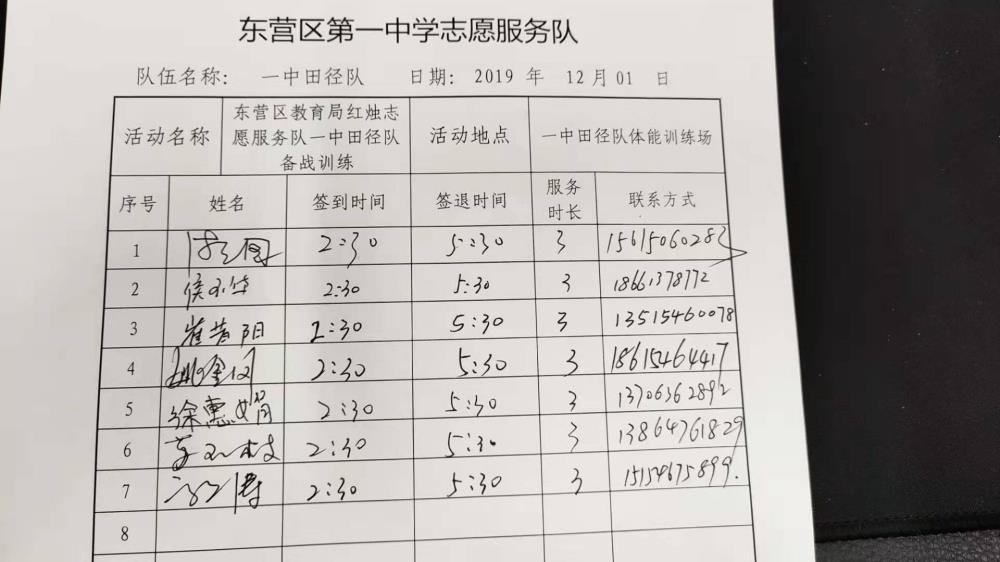 东营区第一中学志愿服务队
队伍名称： 一中田径队 日期：2019 年 12月01 日
活动名称 东营区教育局红烛志愿服务队一中田径队备战训练 活动地点 一中田径队体能训练场
序号 姓名 签到时间 签退时间 服务时长 联系方式
1 2:30 5:30 3 15615060283
2 2:30 5:30 3 18661378772
3 崔 阳 2:30 5:30 3 13515460078
4 2:30 5:30 3 18615464417
5 徐惠娟 2:30 5:30 3 13706362892
6 2:30 5:30 3 13864761829
7 2:30 5:30 3 15154675899.
8